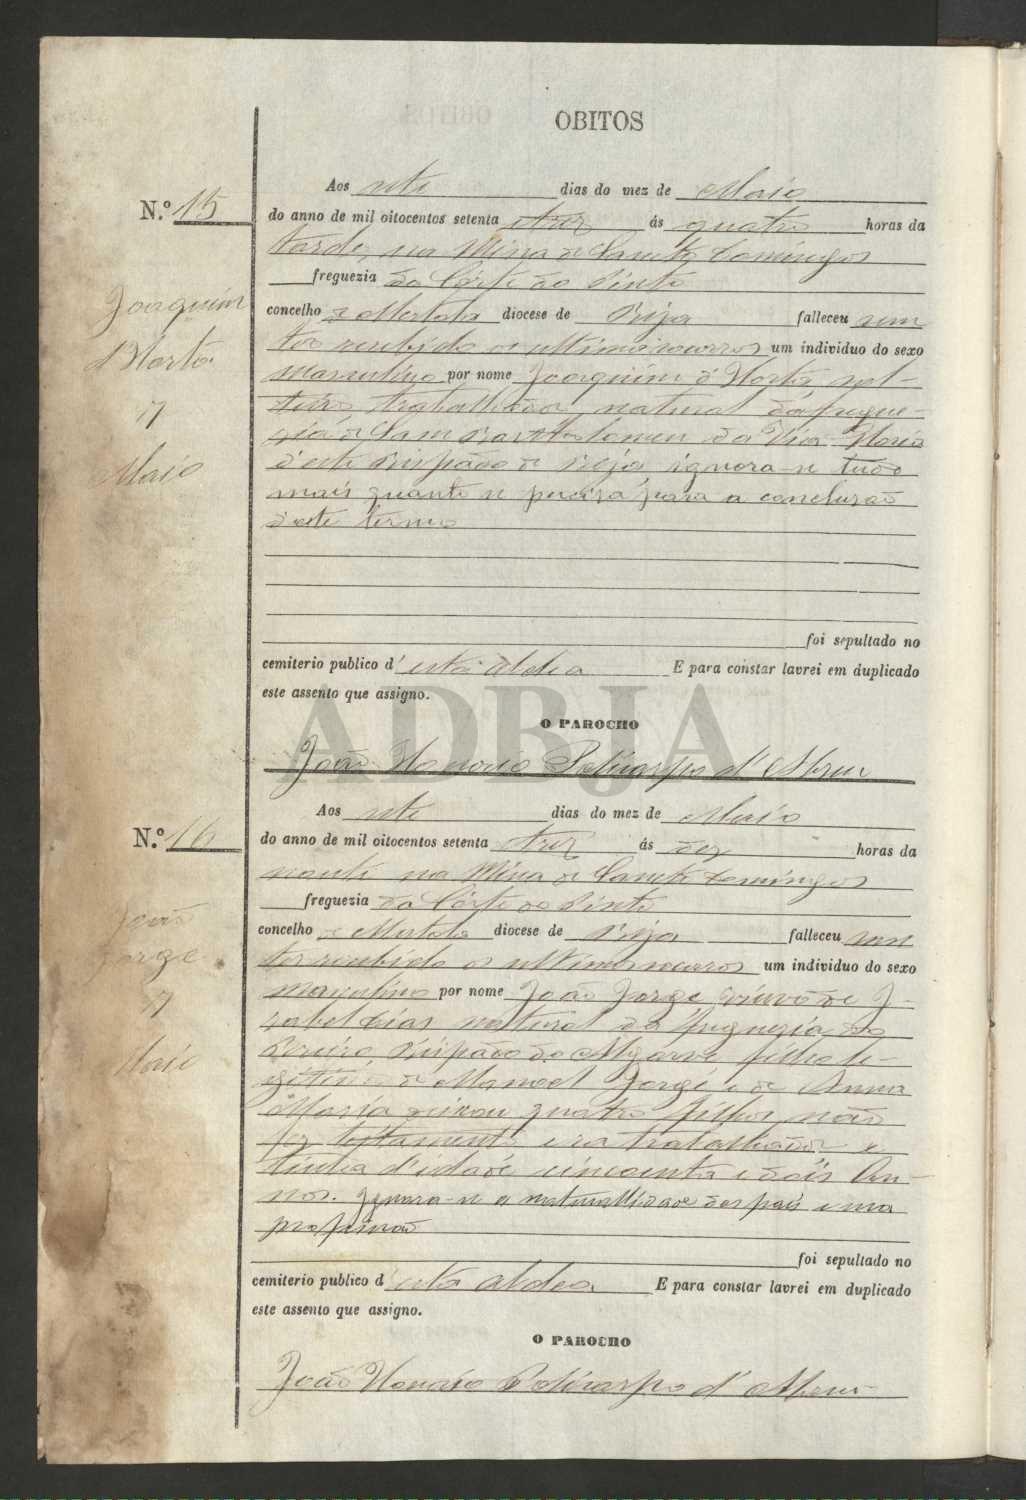 OBITOS
N.º 15
Joaquim
d'Horta
17
Maio
Aos sete dias do mez de Maio
do anno de mil oitocentos setenta trez ás quatro horas da
tarde, na Mina de Sancto Domingos
freguezia da Côrte do Pinto
concelho de Mertola diocese de Beja falleceu sem
ter recebido os ultimos socorros um individuo do sexo
masculino por nome Joaquim d'Horta sol-
teiro, trabalhador, natural da fregue-
zia de Sam Bartholomeu da Via Gloria
d'este Bispado de Beja, ignora-se tudo
mais quanto se precisa para a conclusão
d'este termo
foi sepultado no
cemiterio publico d'esta aldea E para constar lavrei em duplicado
este assento que assigno.
O PAROCHO
ADBJA
João Honorio Policarpo d'Abreu
N.º 16
João
Jorge
17
Maio
Aos sete dias do mez de Maio
do anno de mil oitocentos setenta trez ás dez horas da
noute na Mina de Sancto Domingos
freguezia da Côrte do Pinto
concelho de Mertola diocese de Beja falleceu sem
ter recebido os ultimos socorros um individuo do sexo
masculino por nome João Jorge, viuvo de I-
zabel Dias natural da freguezia do
Pereiro, Bispado do Algarve filho le-
gitimo de Manoel Jorge e de Anna
Maria deixou quatro filhos, não
fez testamento era trabalhador e
tinha d'idade cincoenta e dois an-
nos. Ignora-se a naturallidade dos pais e sua
profissão
foi sepultado no
cemiterio publico d'esta aldea E para constar lavrei em duplicado
este assento que assigno.
O PAROCHO
João Honorio Policarpo d'Abreu